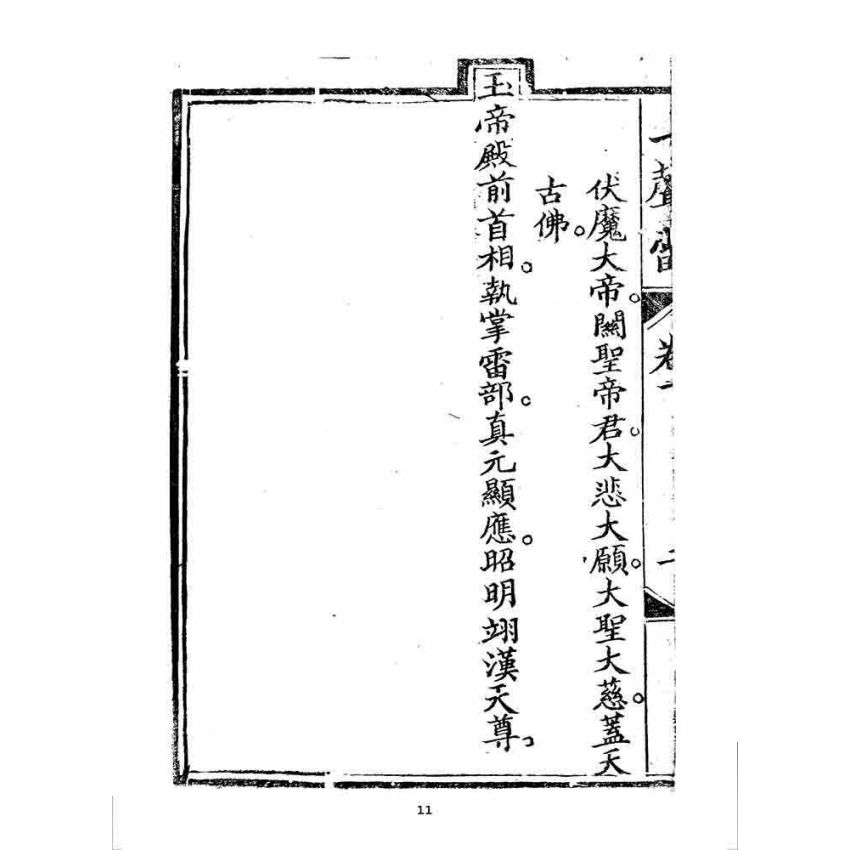 一聲雷
卷一
伏魔大帝。關聖帝君。大悲大願。大聖大慈。蓋天
古佛。
玉帝殿前首相。執掌雷部。真元顯應。昭明翊漢天尊。
11